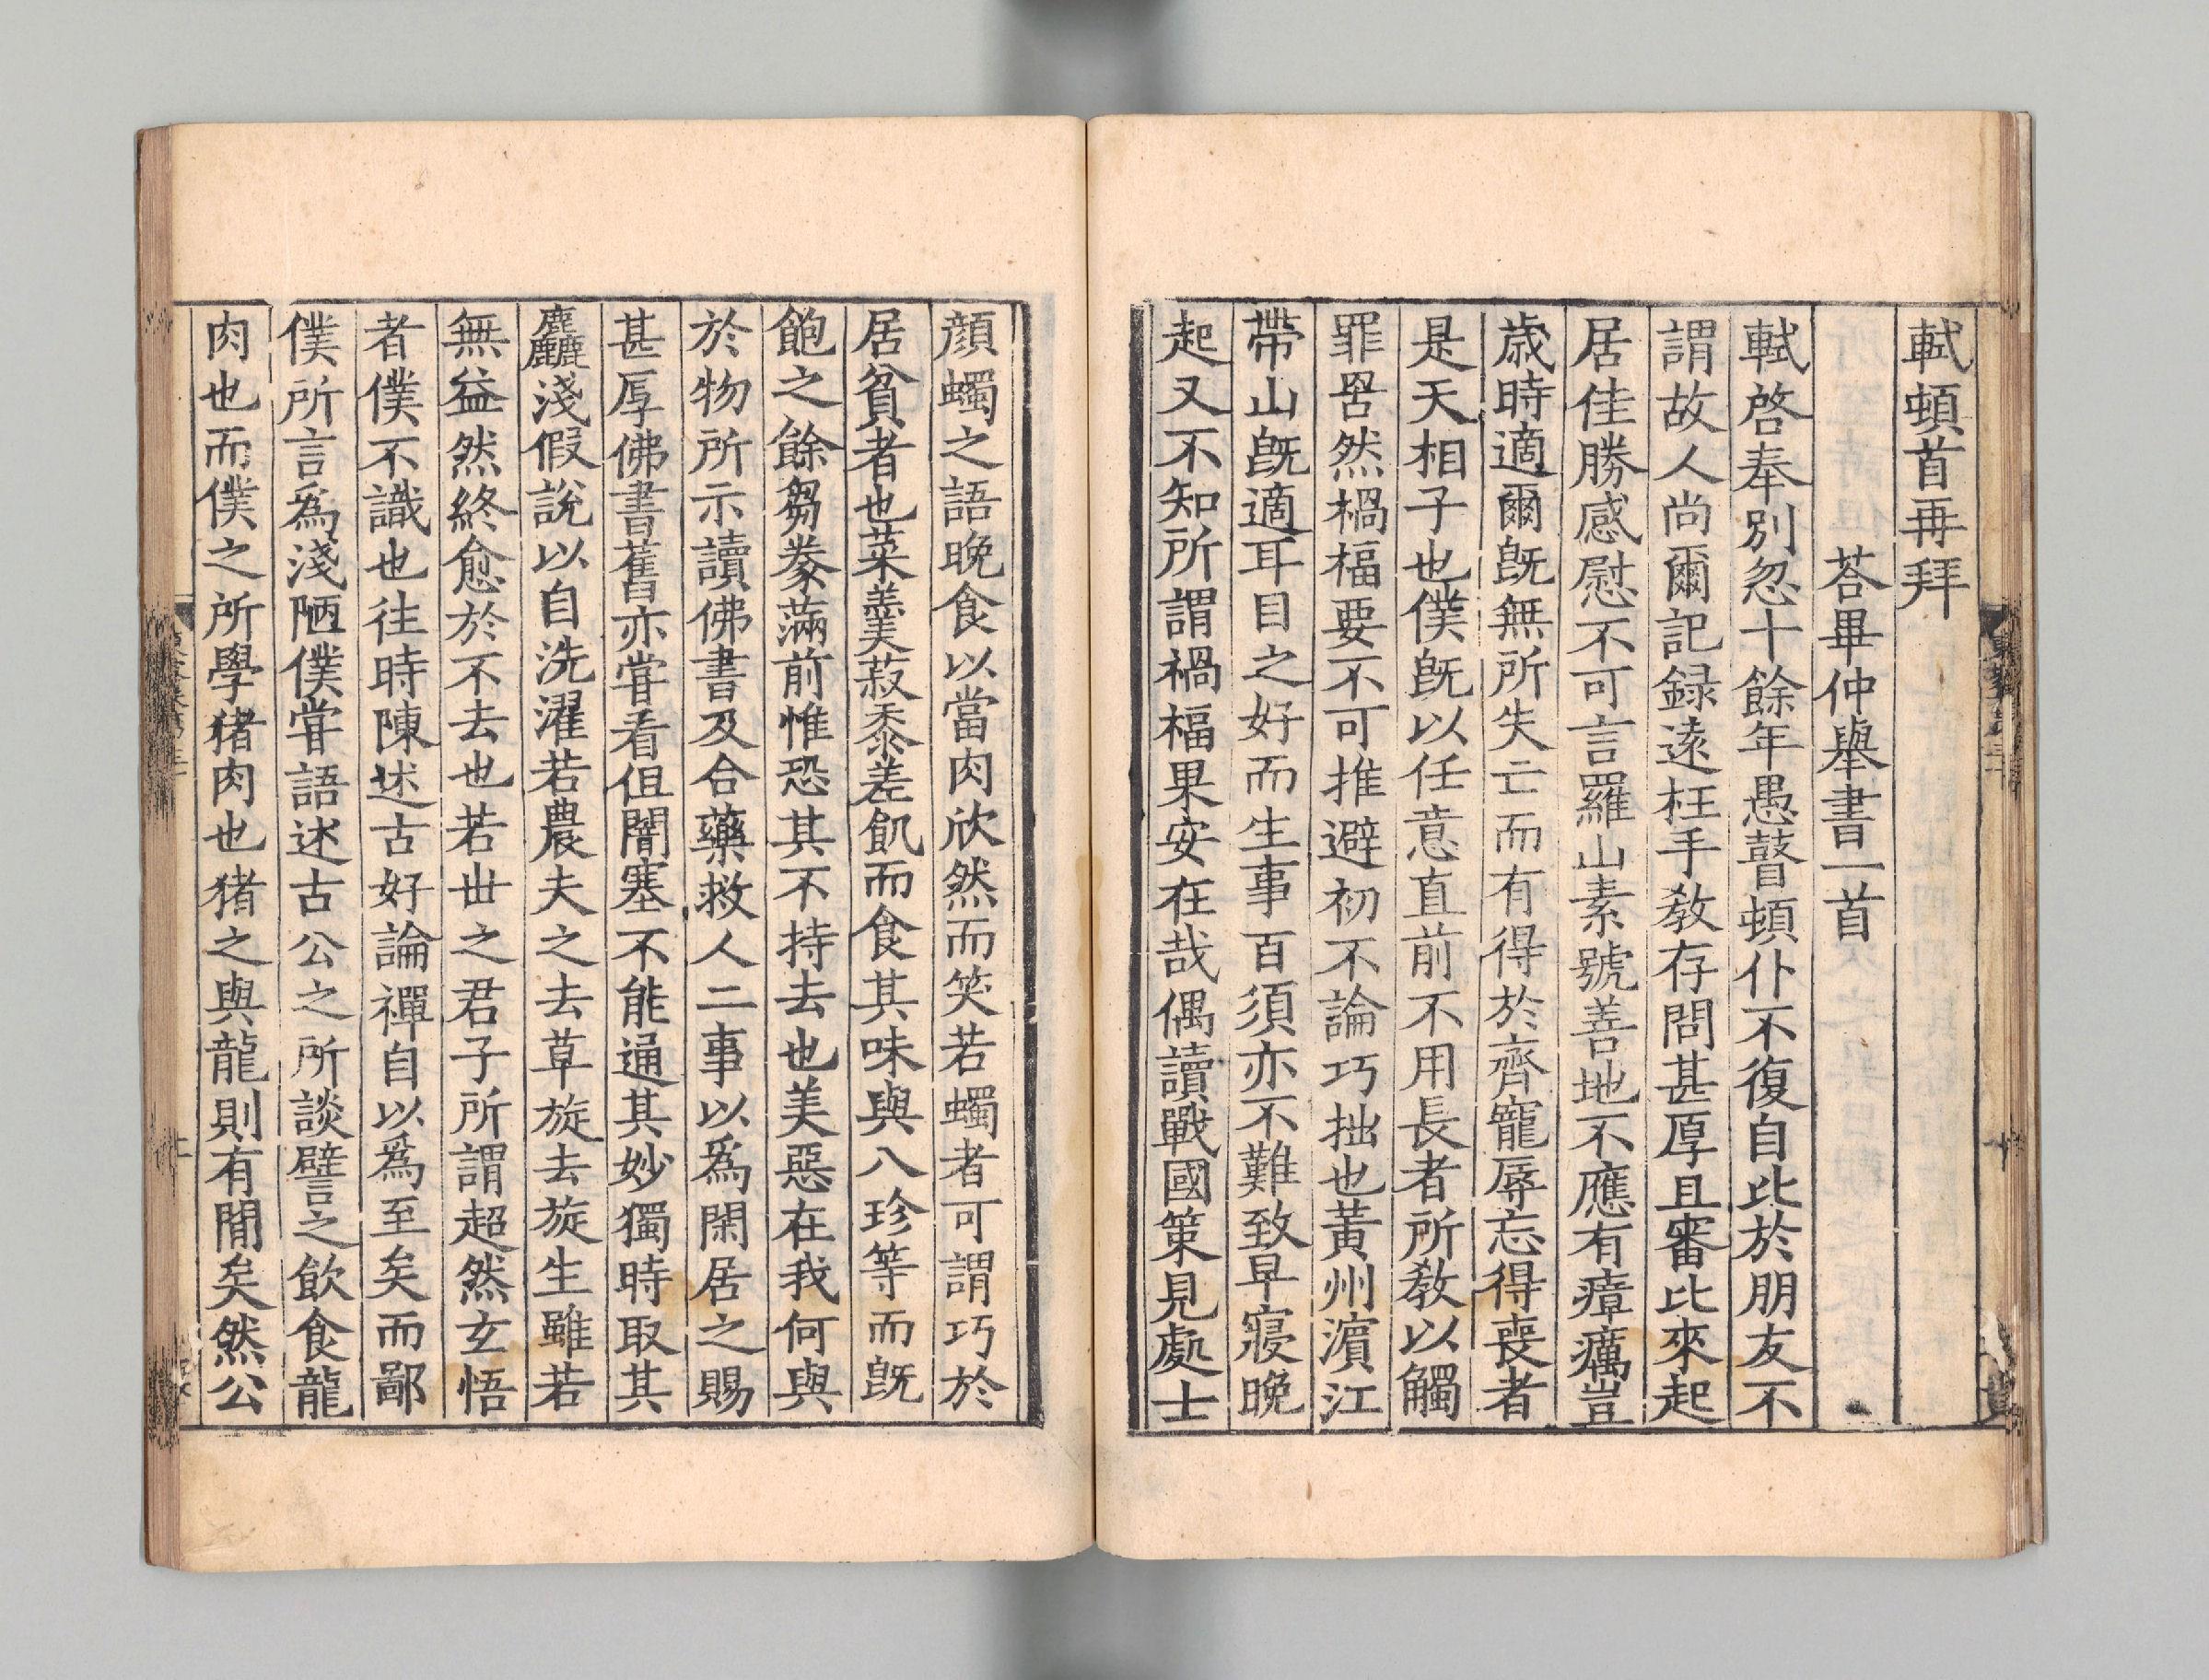 軾頓首再拜
荅畢仲舉書一首
軾啓奉別忽十餘年愚瞽頓仆不復自比於朋友不
謂故人尚爾記録遠枉手敎存問甚厚且審比來起
居佳勝感慰不可言羅山素號善地不應有瘴癘豈
歲時適爾旣無所失亡而有得於齊寵辱忘得喪者
是天相子也僕旣以任意直前不用長者所敎以觸
罪罟然禍福要不可推避初不論巧拙也黃州濵江
帶山旣適耳目之好而生事百須亦不難致早寢晚
起又不知所謂禍福果安在哉偶讀戰國策見處士
顔蠋之語晚食以當肉欣然而笑若蠋者可謂巧於
居貧者也菜羹菽黍差飢而食其味與八珍等而旣
飽之餘芻豢滿前惟恐其不持去也美惡在我何與
於物所示讀佛書及合藥救人二事以爲閑居之賜
甚厚佛書舊亦甞看但闇塞不能通其妙獨時取其
麤淺假說以自洗濯若農夫之去草旋去旋生雖若
無益然終愈於不去也若丗之君子所謂超然玄悟
者僕不識也往時陳述古好論禪自以爲至矣而鄙
僕所言爲淺陋僕甞語述古公之所談譬之飲食龍
肉也而僕之所學猪肉也猪之與龍則有閒矣然公